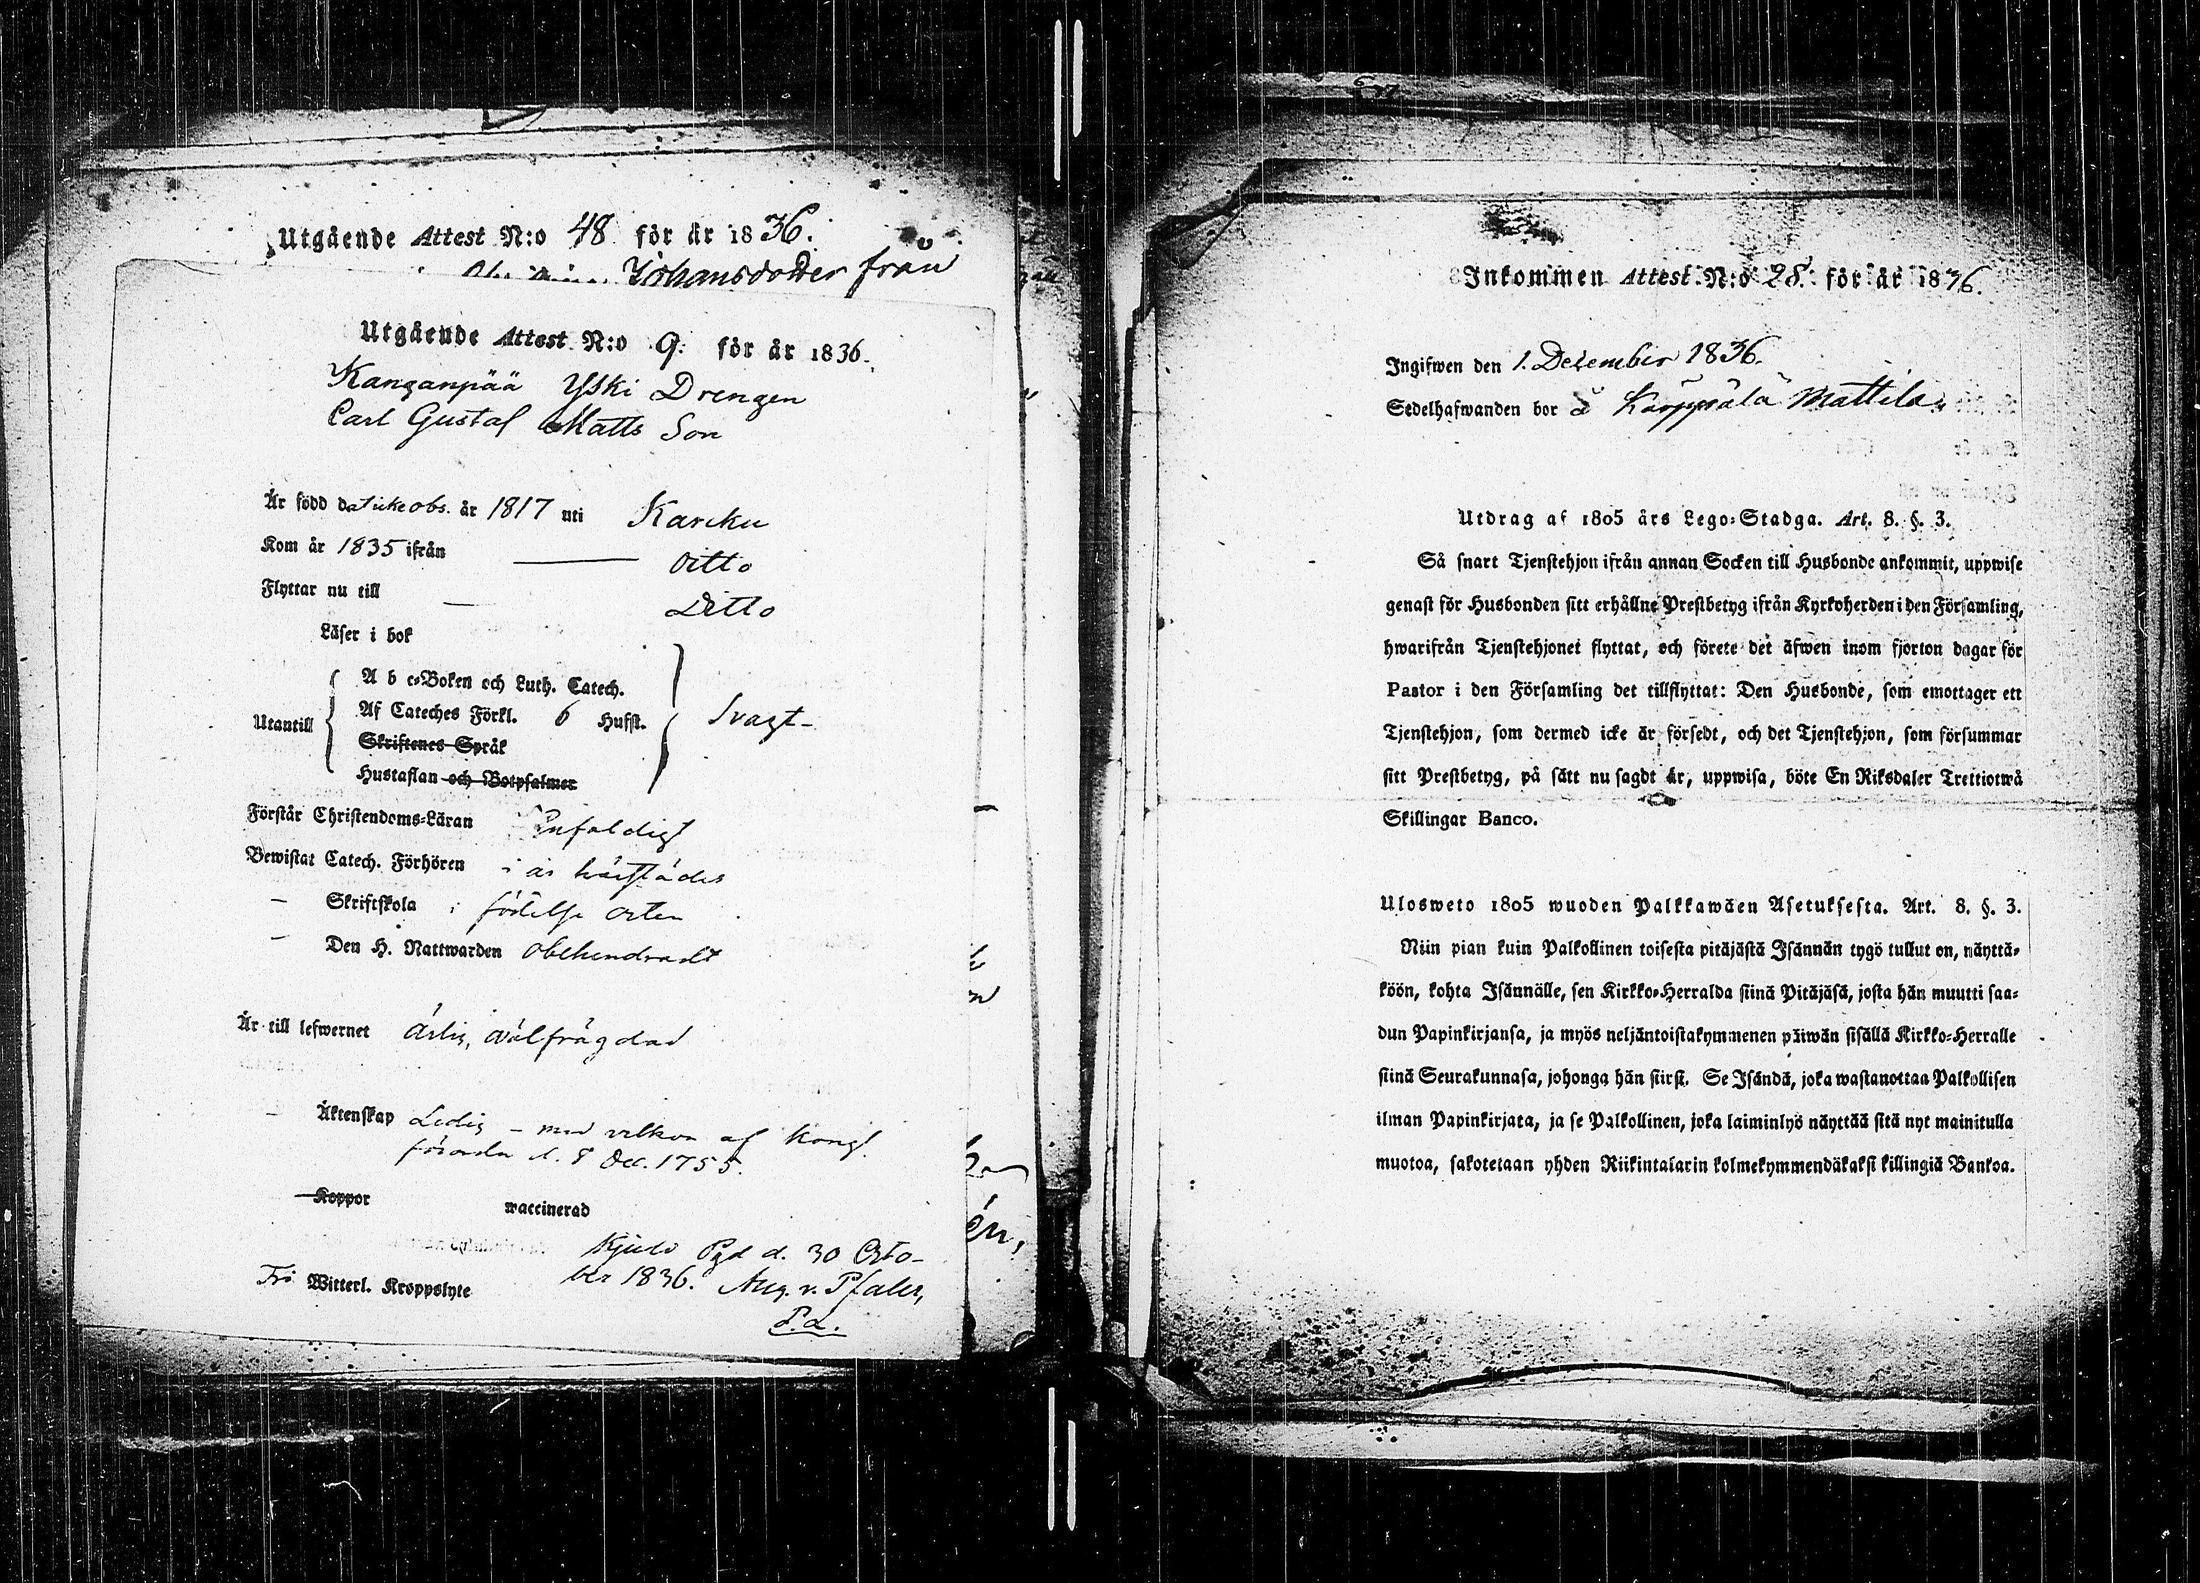 Utgående Attest N:o 48 för år 1836.
Johansdotter från
Utgående Attest N:o 9. för år 1836.
Kanganpää Yski Drengen
Carl Gustaf Matts Son
Är född dat icke obs. år 1817 uti Karcku
Kom år 1835 ifrån — Ditto
Flyttar nu till — Ditto
Läser i bok
A b c-Boken och Luth. Catech.
Af Cateches Förkl. 6 Hufst.
Utantill Svagt
Skriftenes Språk
Hustaflan och Botpsalmer
Förstår Christendoms-Läran Enfaldigt
Bewistat Catech. Förhören i år härstädes
— Skriftskola i födelse orten
— Den H. Nattwarden obehindradt
Är till lefwernet ärlig, välfrägdad
— Äktenskap Ledig – med vilkor af Kongl.
förordn d. 8 Dec. 1755.
Koppor waccinerad
d. 30 Octo-
Fri Witterl. Kroppslyte ber 1836. Aug. v. Pfaler,
Inkommen Attest N:o 28. för år 1836.
Ingifwen den 1. December 1836.
Sedelhafwanden bor å Karppälä Mattila
Utdrag af 1805 års Lego-Stadga. Art. 8. §. 3.
Så snart Tjenstehjon ifrån annan Socken till Husbonde ankommit, uppwise
genast för Husbonden sitt erhållne Prestbetyg ifrån Kyrkoherden i den Församling,
hwarifrån Tjenstehjonet flyttat, och förete det äfwen inom fjorton dagar för
Pastor i den Församling det tillflyttat: Den Husbonde, som emottager ett
Tjenstehjon, som dermed icke är försedt, och det Tjenstehjon, som försummar
sitt Prestbetyg, på sätt nu sagdt är, uppwisa, böte En Riksdaler Trettiotwå
Skillingar Banco.
Ulosweto 1805 wuoden Palkkawäen Asetuksesta. Art. 8. §. 3.
Niin pian kuin Palkollinen toisesta pitäjästä Isännän tygö tullut on, näyttä-
köön, kohta Isännälle, sen Kirkko-Herralda siinä Pitäjäsä, josta hän muutti saa-
dun Papinkirjansa, ja myös neljäntoistakymmenen päiwän sisällä Kirkko-Herralle
siinä Seurakunnasa, johonga hän siirsi. Se Isändä, joka wastanottaa Palkollisen
ilman Papinkirjata, ja se Palkollinen, joka laiminlyö näyttää sitä nyt mainitulla
muotoa, sakotetaan yhden Riikintalarin kolmekymmendäkaksi killingiä Bankoa.